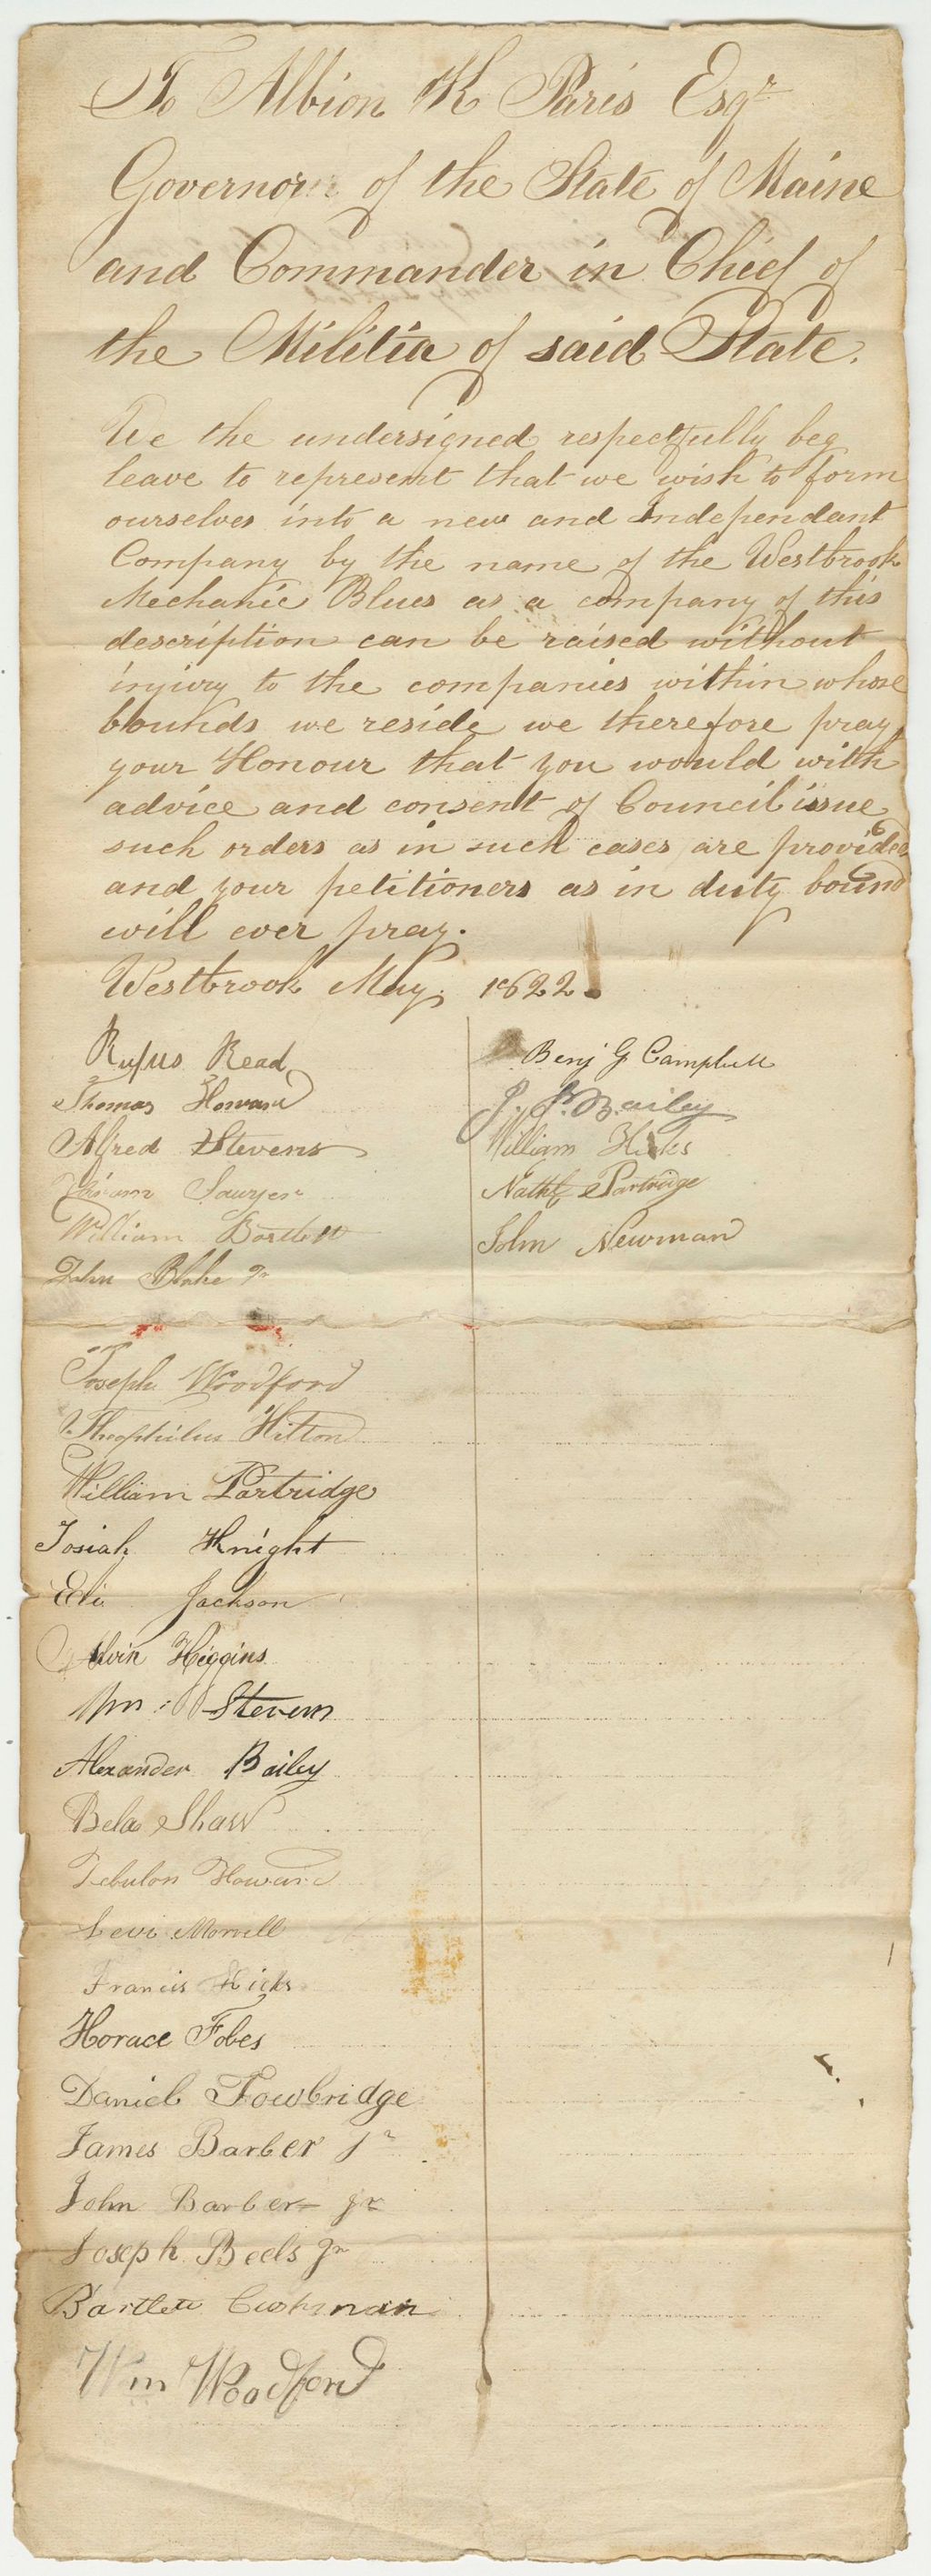 To Albion K Paris Esqr
Governor of the State of Maine
and Commander in Chief of
the Militia of said State.
We the undersigned respectfully beg
leave to represent that we wish to form
ourselves into a new and Independant
Company by the name of the Westbrook
Mechanic Blues as a company of this
description can be raised without
injury to the companies within whose
bounds we reside we therefore pray
your Honour that you would with
advice and consent of Council issue
such orders as in such cases are provided
and your petitioners as in duty bound
will ever pray.
Westbrook May, 1822.
Rufus Read
Thomas Howard
Alfred Stevens
Hiram Sawyer
William Bartlett
John Blake Jr
Joseph Woodford
Theophilus Hilton
William Partridge
Josiah Knight
Eli Jackson
Alvin Higgins
Wm Stevens
Alexander Bailey
Bela Shaw
Zebulon Howard
Levi Morrill
Francis Hicks
Horace Fobes
Daniel Towbridge
James Barber Jr
John Barber Jr
Joseph Beels Jr
Bartlett Cushman
Wm Woodford
Benj G Campbell
J. P. Bailey
William Hicks
Nathl Partridge
John Newman